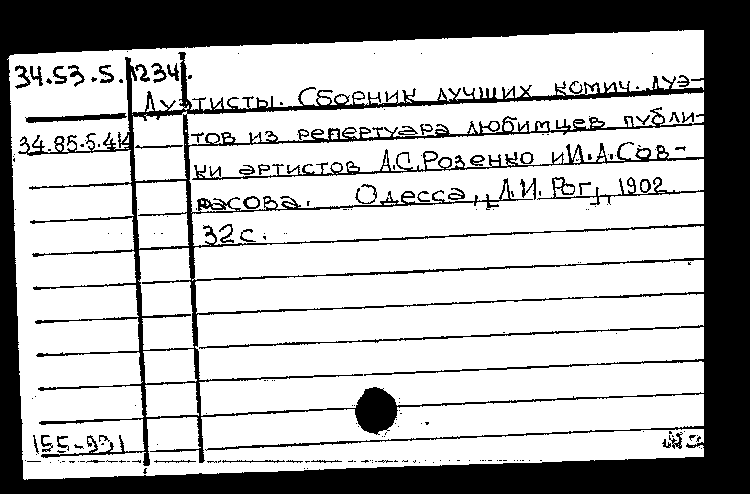 34.53.5.1234.
Дуэтисты. Сборник лучших комич. дуэ-
34.85.5.414 тов из репертуара любимцев публи-
ки артистов А.С.Розенко и И.А.Сов-
расова. Одесса, [Л.И. Рог], 1902.
32с.
155-991